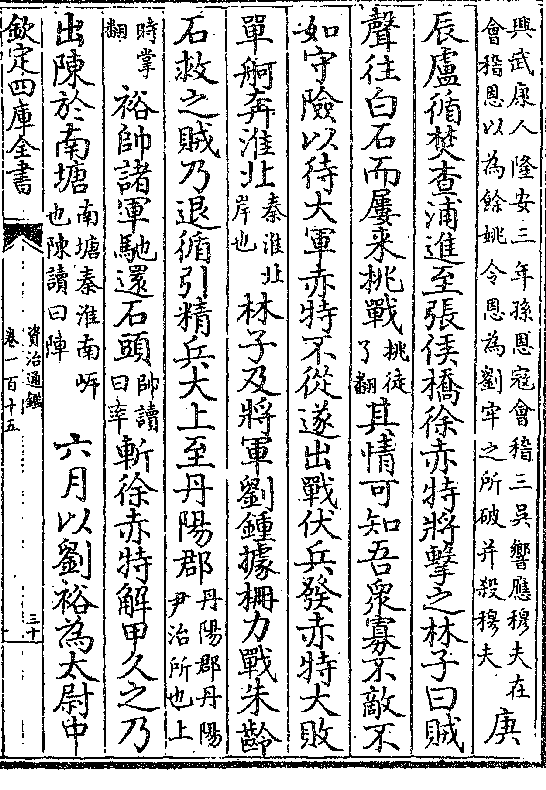 興武康人隆安三年孫恩寇會稽三吳響應穆夫在
會稽恩以為餘姚令恩為劉牢之所破并殺穆夫
庚
辰盧循焚查浦進至張侯橋徐赤特將擊之林子曰賊
聲往白石而屢來挑戰挑徒了翻其情可知吾衆寡不敵不
如守險以待大軍赤特不從遂出戰伏兵發赤特大敗
單舸奔淮北秦淮北岸也林子及將軍劉鍾據柵力戰朱齡
石救之賊乃退循引精兵大上至丹陽郡丹陽郡丹陽尹治所也上
時掌翻裕帥諸軍馳還石頭帥讀曰率斬徐赤特解甲久之乃
出陳於南塘南塘秦淮南岍也陳讀曰陣六月以劉裕為太尉中
欽定四庫全書
資治通鑑
卷一百十五
三十